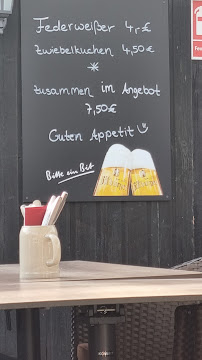 Federweißer 4,-€
Zwiebelkuchen 4,50€
*
zusammen im Angebot
7,50€
Guten Appetit
Bitte ein Bit